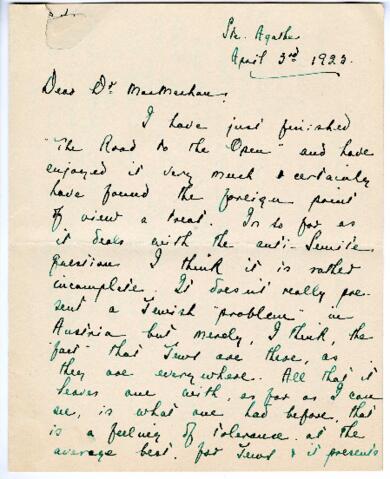 Ste. Agathe
April 3rd 1923.
Dear Dr. MacMechan,
I have just finished
"The Road to the Open" and have
enjoyed it very much & certainly
have found the foreign point
of view a treat. In so far as
it deals with the anti-Semite
question I think it is rather
incomplete. It doesn't really pre-
sent a Jewish "problem" in
Austria but merely, I think, the
"fact" that Jews are there, as
they are everywhere. All that it
leaves one with, as far as I can
see, is what one had before, that
is a feeling of tolerance at the
average best, for Jews & it presents